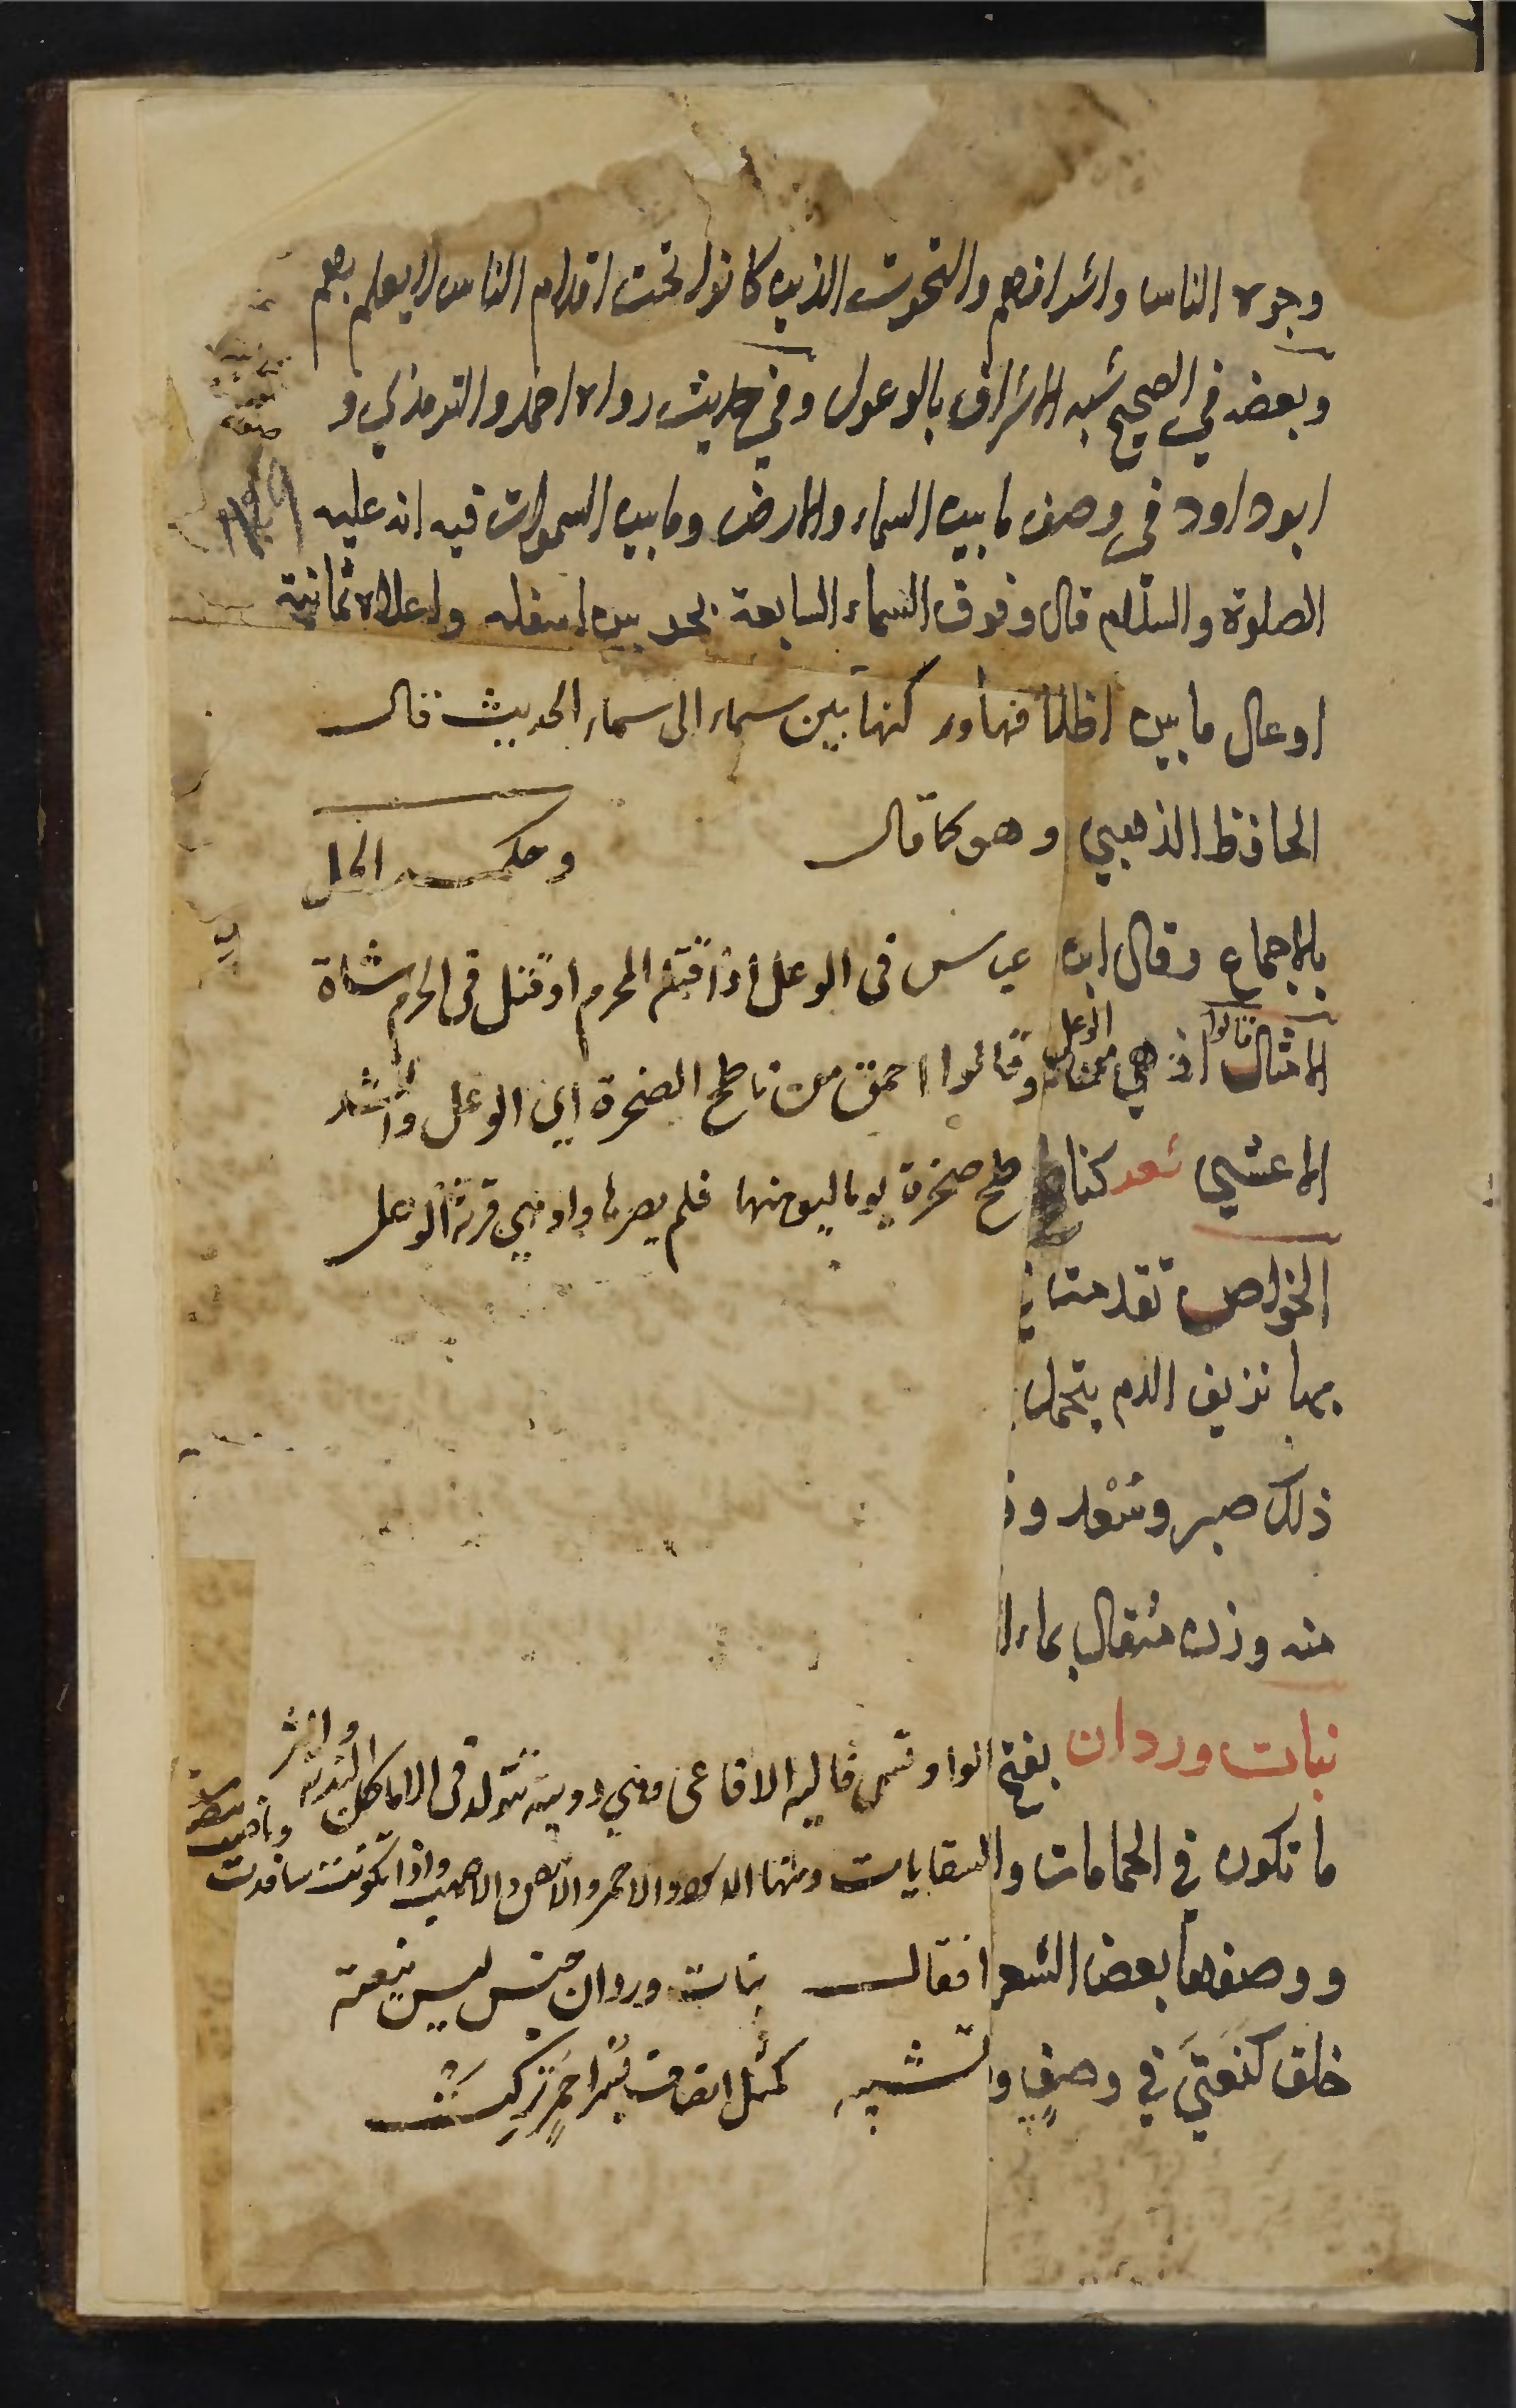 وجوه الناس واشرافهم والتحوت الذين كانوا تحت اقدام الناس لا يعلم بهم
وبعضه في الصحيح شبه الاشراف بالوعول وفي حديث رواه احمد والترمذي و
ابو داود في وصف ما بين السماء والارض وما بين السموات فيه انه عليه
الصلوة والسلام قال وفوق السماء السابعة بحر بين اسفله واعلاه ثمانية
اوعال ما بين اظلافها وركبها بين سماء الى سماء الحديث قال
الحافظ الذهبي وهو كما قال وحكمه الحل
بالاجماع وقال ابن عباس في الوعل اذا قتله المحرم او قتل في الحرم شاة
الامثال قالوا اذهي من الوعل وقالوا احمق من ناطح الصخرة اي الوعل وانشد
الاعشى شعر كناطح صخرة يوما ليوهنها فلم يضرها واوهى قرنه الوعل
الخواص تقدمت
بها نزيف الدم يتحمل
ذلك صبر وسعد و
منه وزن مثقال بماء
بنات وردان بفتح الواو تسمى فالية الافاعى وهي دويبة تتولد في الاماكن الندية واكثر
ما تكون في الحمامات والسقايات ومنها الاسود والاحمر والابيض والاصهب واذا تكونت سافدت وباضت
ووصفها بعض الشعرا فقال بنات وردان جنس ليس ينعته
خلق كنعتي في وصف وتشبيه كمثل انصاف بسر احمر تركت